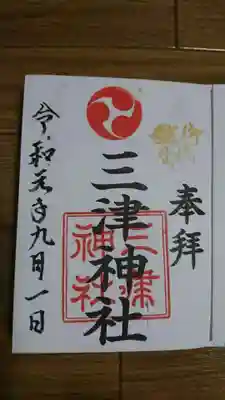 奉拝
三津神社
三津
神社
令和元年九月一日